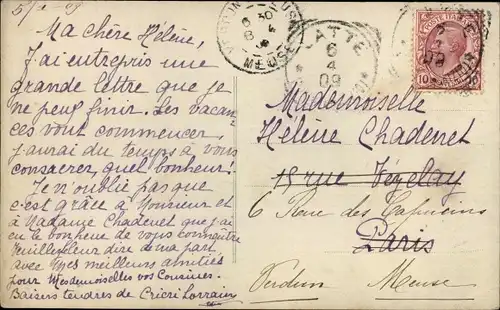 Ma chère Hélène,
J'ai entrepris une
grande lettre que je
ne peux finir. Les vacan-
ces vont commencer
j'aurai du temps à vous
consacrer, quel bonheur!
Je n'oublie pas que
c'est grâce à Monsieur et
à Madame Chadenet que j'ai
eu le bonheur de vous connaître
Veuillez leur dire de ma part
avec mes meilleurs amitiés
pour Mesdemoiselles vos Cousines.
Baisers tendres de Cricri Lorrain
VERDUN MEUSE
6 4
MEUSE
LATTE
6
4
09
POSTE ITALIANE
10 10
Mademoiselle
Hélène Chadenet
15 rue Vézelay
6 Rue des Capucins
Paris
Verdun Meuse